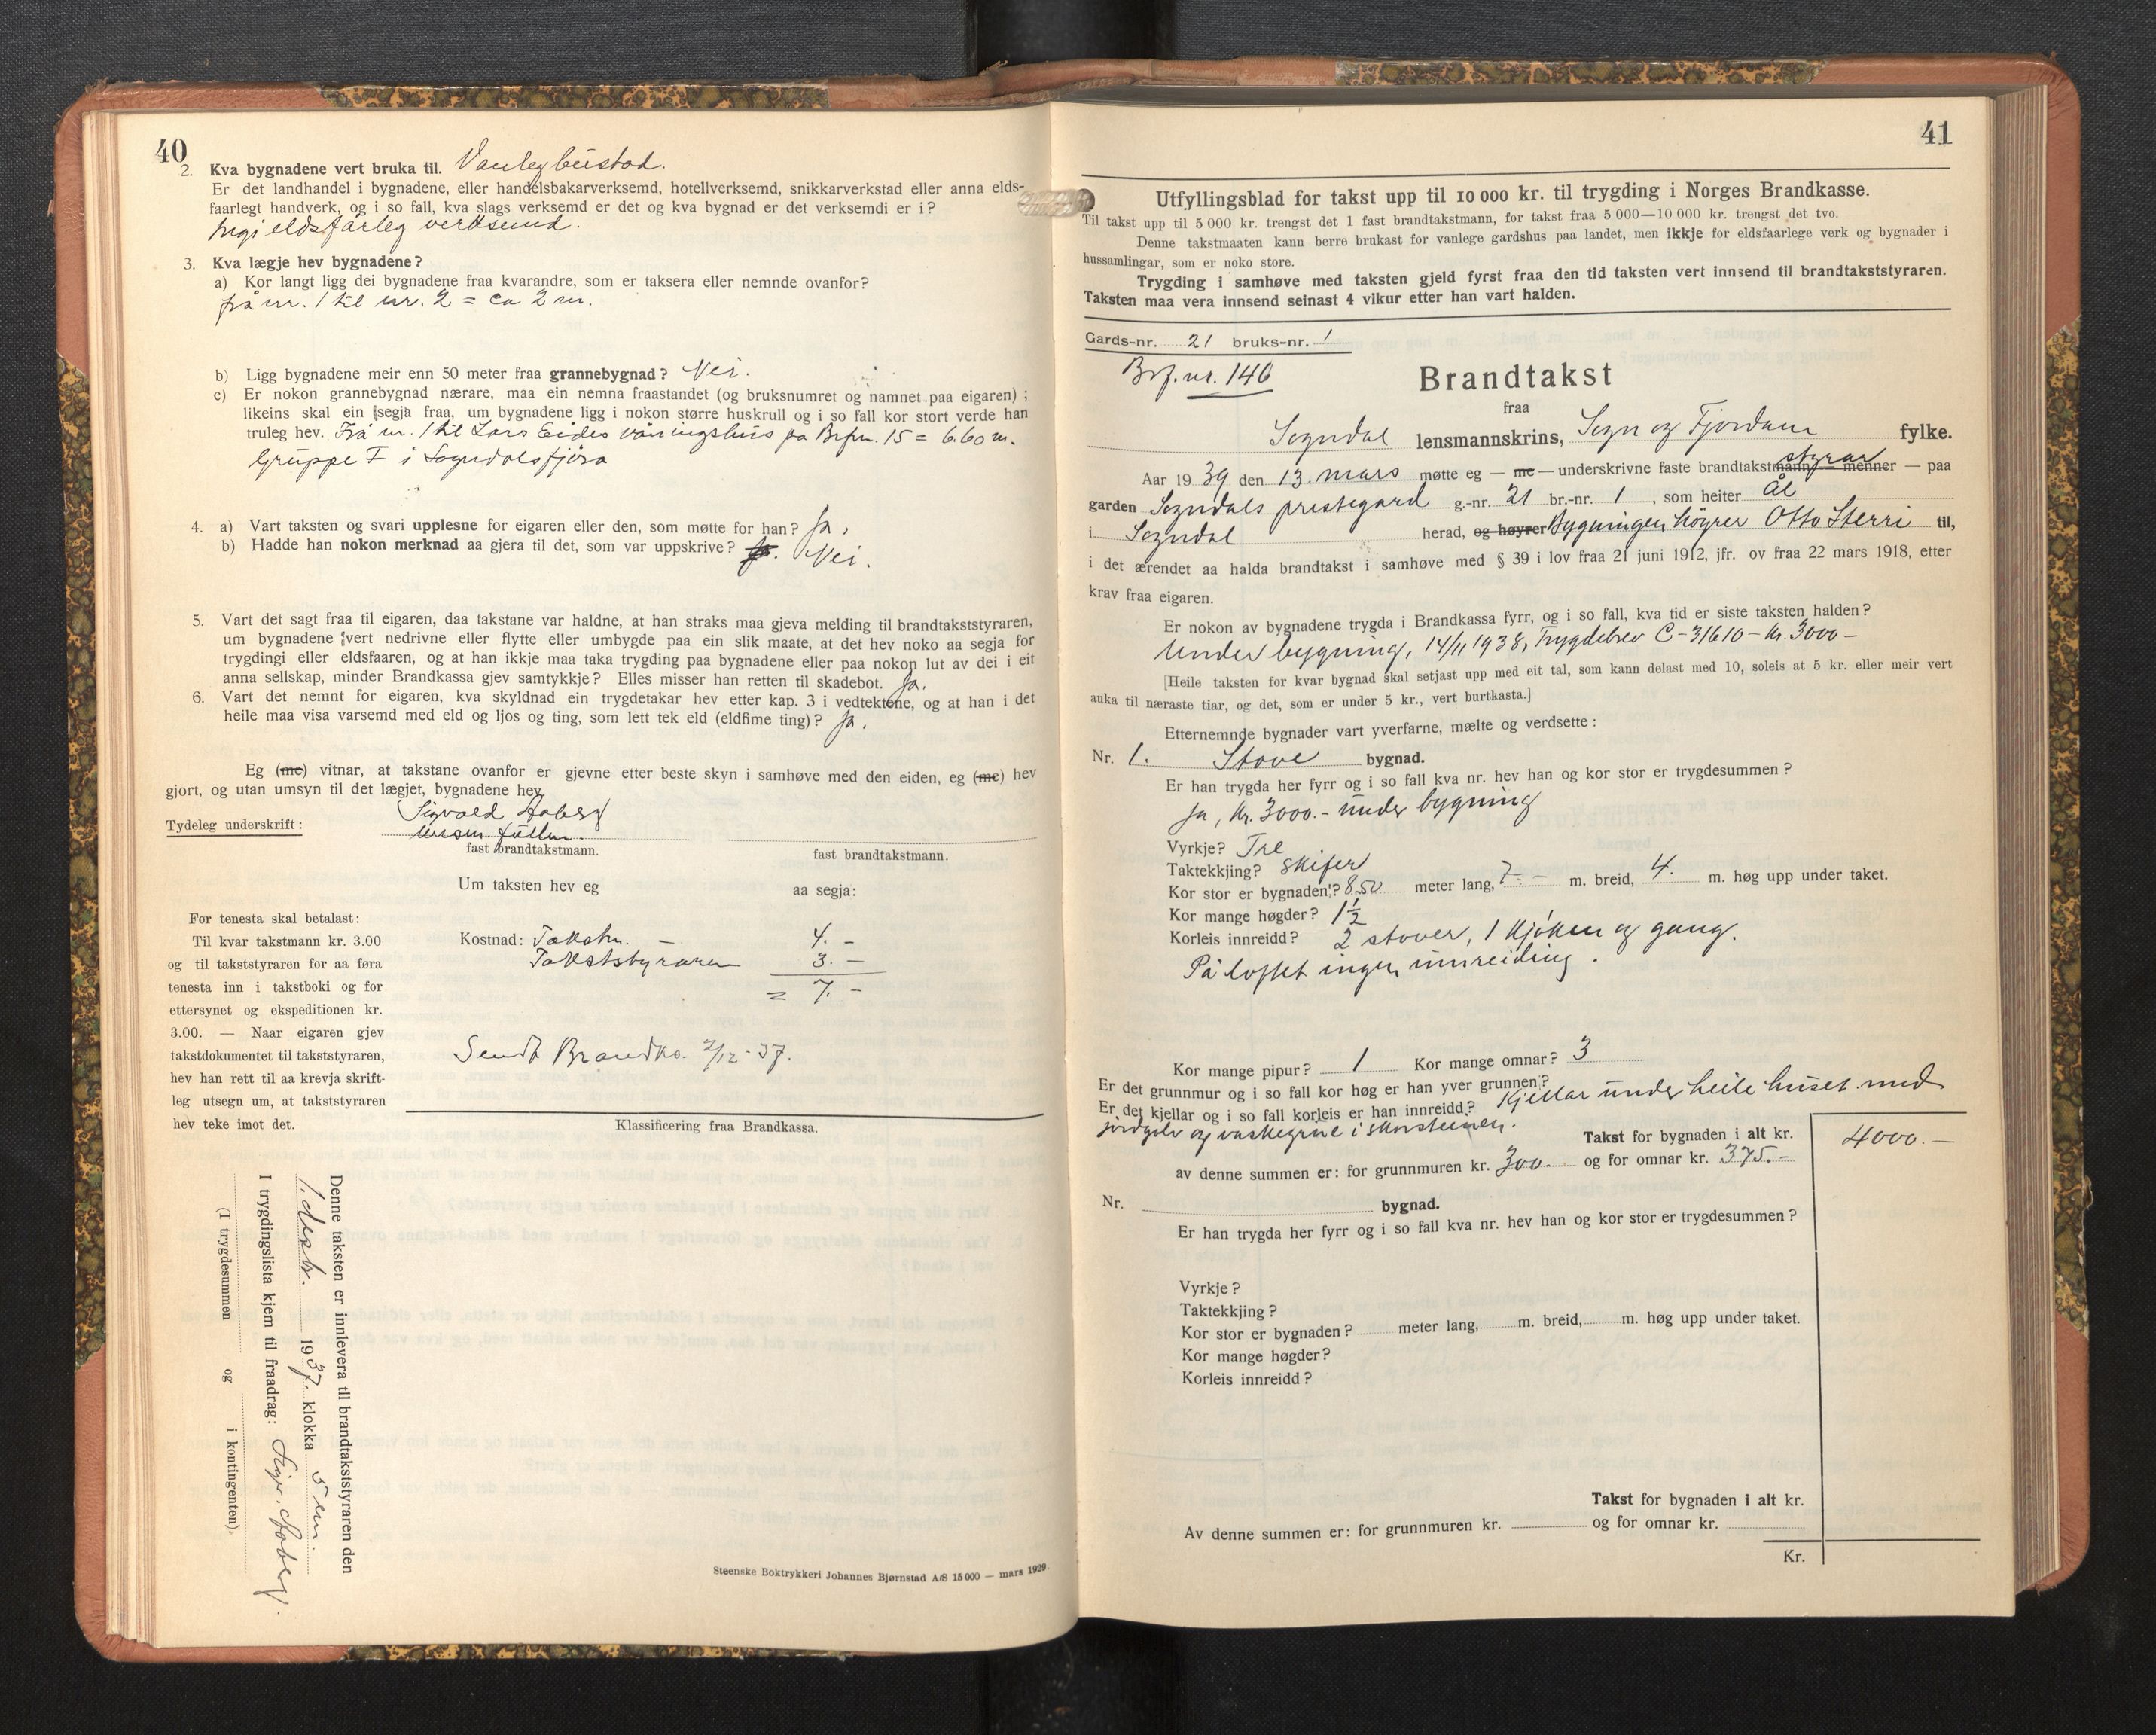 40
2. Kva bygnadene vert bruka til. Vanleg bustad.
Er det landhandel i bygnadene, eller handelsbakarverksemd, hotellverksemd, snikkarverkstad eller anna elds-
faarlegt handverk, og i so fall, kva slags verksemd er det og kva bygnad er det verksemdi er i?
Ingi eldsfårleg verksemd.
3. Kva lægje hev bygnadene?
a) Kor langt ligg dei bygnadene fraa kvarandre, som er taksera eller nemnde ovanfor?
frå nr. 1 til nr. 2 = ca 2 m.
b) Ligg bygnadene meir enn 50 meter fraa grannebygnad? Nei.
c) Er nokon grannebygnad nærare, maa ein nemna fraastandet (og bruksnumret og namnet paa eigaren);
likeins skal ein segja fraa, um bygnadene ligg i nokon større huskrull og i so fall kor stort verde han
truleg hev. Frå nr. 1 til Lars Eides våningshus på Brfnr. 15 = 6.60 m.
Gruppe I i Sogndalsfjøra
4. a) Vart taksten og svari upplesne for eigaren eller den, som møtte for han? Ja.
b) Hadde han nokon merknad aa gjera til det, som var uppskrive? Ja. Nei.
5. Vart det sagt fraa til eigaren, daa takstane var haldne, at han straks maa gjeva melding til brandtakststyraren,
um bygnadene vert nedrivne eller flytte eller umbygde paa ein slik maate, at det hev noko aa segja for
trygdingi eller eldsfaaren, og at han ikkje maa taka trygding paa bygnadene eller paa nokon lut av dei i eit
anna sellskap, minder Brandkassa gjev samtykkje? Elles misser han retten til skadebot. Ja.
6. Vart det nemnt for eigaren, kva skyldnad ein trygdetakar hev etter kap. 3 i vedtektene, og at han i det
heile maa visa varsemd med eld og ljos og ting, som lett tek eld (eldfime ting)? Ja.
Eg (me) vitnar, at takstane ovanfor er gjevne etter beste skyn i samhøve med den eiden, eg (me) hev
gjort, og utan umsyn til det lægjet, bygnadene hev
Tydeleg underskrift: Sigvald Aaberg
fast brandtakstmann. fast brandtakstmann.
Um taksten hev eg aa segja:
For tenesta skal betalast:
Til kvar takstmann kr. 3.00
og til takststyraren for aa føra
tenesta inn i takstboki og for
ettersynet og ekspeditionen kr.
3.00. — Naar eigaren gjev
takstdokumentet til takststyraren,
hev han rett til aa krevja skrift-
leg utsegn um, at takststyraren
hev teke imot det.
Kostnad: Takstm. — 4. –
Takststyraren 3. –
= 7. –
Sendt Brandks. 2/12-37.
Klassificering fraa Brandkassa.
Denne taksten er innlevera til brandtakststyraren den
1. desbr. 1937. klokka 5 em
I trygdingslista kjem til fraadrag: Sigv. Aaberg.
(I trygdesummen og i kontingenten).
Steenske Boktrykkeri Johannes Bjørnstad A/S 15 000 — mars 1929.
41
Utfyllingsblad for takst upp til 10 000 kr. til trygding i Norges Brandkasse.
Til takst upp til 5 000 kr. trengst det 1 fast brandtakstmann, for takst fraa 5 000—10 000 kr. trengst det tvo.
Denne takstmaaten kann berre brukast for vanlege gardshus paa landet, men ikkje for eldsfaarlege verk og bygnader i
hussamlingar, som er noko store.
Trygding i samhøve med taksten gjeld fyrst fraa den tid taksten vert innsend til brandtakststyraren.
Taksten maa vera innsend seinast 4 vikur etter han vart halden.
Gards-nr. 21 bruks-nr. 1
Brf. nr. 146
Brandtakst
fraa
Sogndal lensmannskrins, Sogn og Fjordane fylke.
Aar 1939 den 13. mars møtte eg — me — underskrivne faste brandtakstmann — menner styrar — paa
garden Sogndals prestegard g.-nr. 21 br.-nr. 1, som heiter Ål
i Sogndal herad, og høyrer Bygningen høyrer Otto Sterri til,
i det ærendet aa halda brandtakst i samhøve med § 39 i lov fraa 21 juni 1912, jfr. ov fraa 22 mars 1918, etter
krav fraa eigaren.
Er nokon av bygnadene trygda i Brandkassa fyrr, og i so fall, kva tid er siste taksten halden?
Under bygning, 14/11 1938, Trygdebrev C-31610 – Kr. 3000 –
[Heile taksten for kvar bygnad skal setjast upp med eit tal, som kann delast med 10, soleis at 5 kr. eller meir vert
auka til næraste tiar, og det, som er under 5 kr., vert burtkasta.]
Etternemnde bygnader vart yverfarne, mælte og verdsette:
Nr. 1. Stove bygnad.
Er han trygda her fyrr og i so fall kva nr. hev han og kor stor er trygdesummen?
Ja, Kr. 3000.- under bygning
Vyrkje? Tre
Taktekkjing? Skifer
Kor stor er bygnaden? 8.50 meter lang, 7.– m. breid, 4. m. høg upp under taket.
Kor mange høgder? 1½
Korleis innreidd? 2 stover, 1 kjøken og gang.
På loftet ingen innreiding.
Kor mange pipur? 1 Kor mange omnar? 3
Er det grunnmur og i so fall kor høg er han yver grunnen?
Er det kjellar og i so fall korleis er han innreidd? Kjellar under heile huset med
jordgolv og vaskegrue i skorsteinen.
Takst for bygnaden i alt kr. 4000.—
av denne summen er: for grunnmuren kr. 300.- og for omnar kr. 375.-
Nr. bygnad.
Er han trygda her fyrr og i so fall kva nr. hev han og kor stor er trygdesummen?
Vyrkje?
Taktekkjing?
Kor stor er bygnaden? meter lang, m. breid, m. høg upp under taket.
Kor mange høgder?
Korleis innreidd?
Takst for bygnaden i alt kr.
Av denne summen er: for grunnmuren kr. og for omnar kr.
Kr.